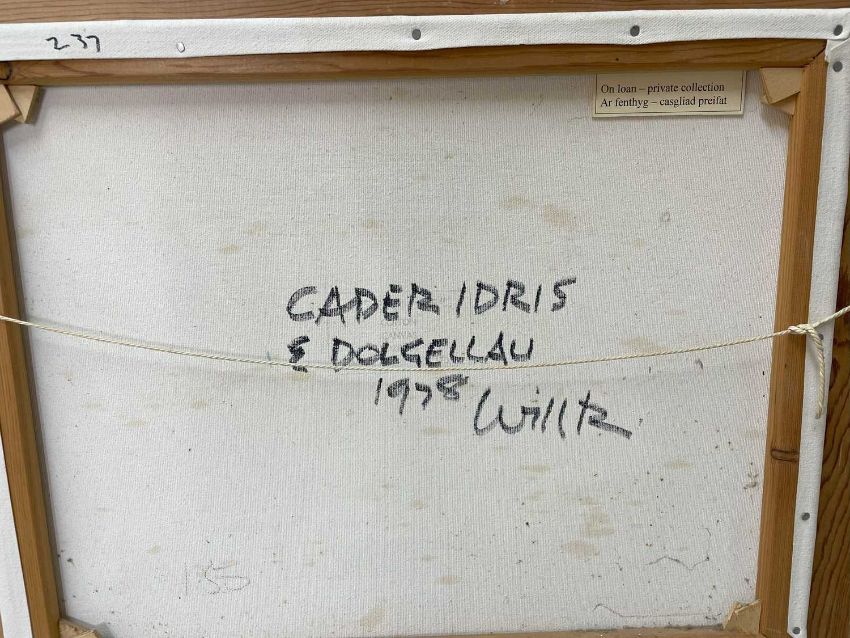 237
On loan – private collection
Ar fenthyg – casgliad preifat
CADER IDRIS
& DOLGELLAU
1978
135